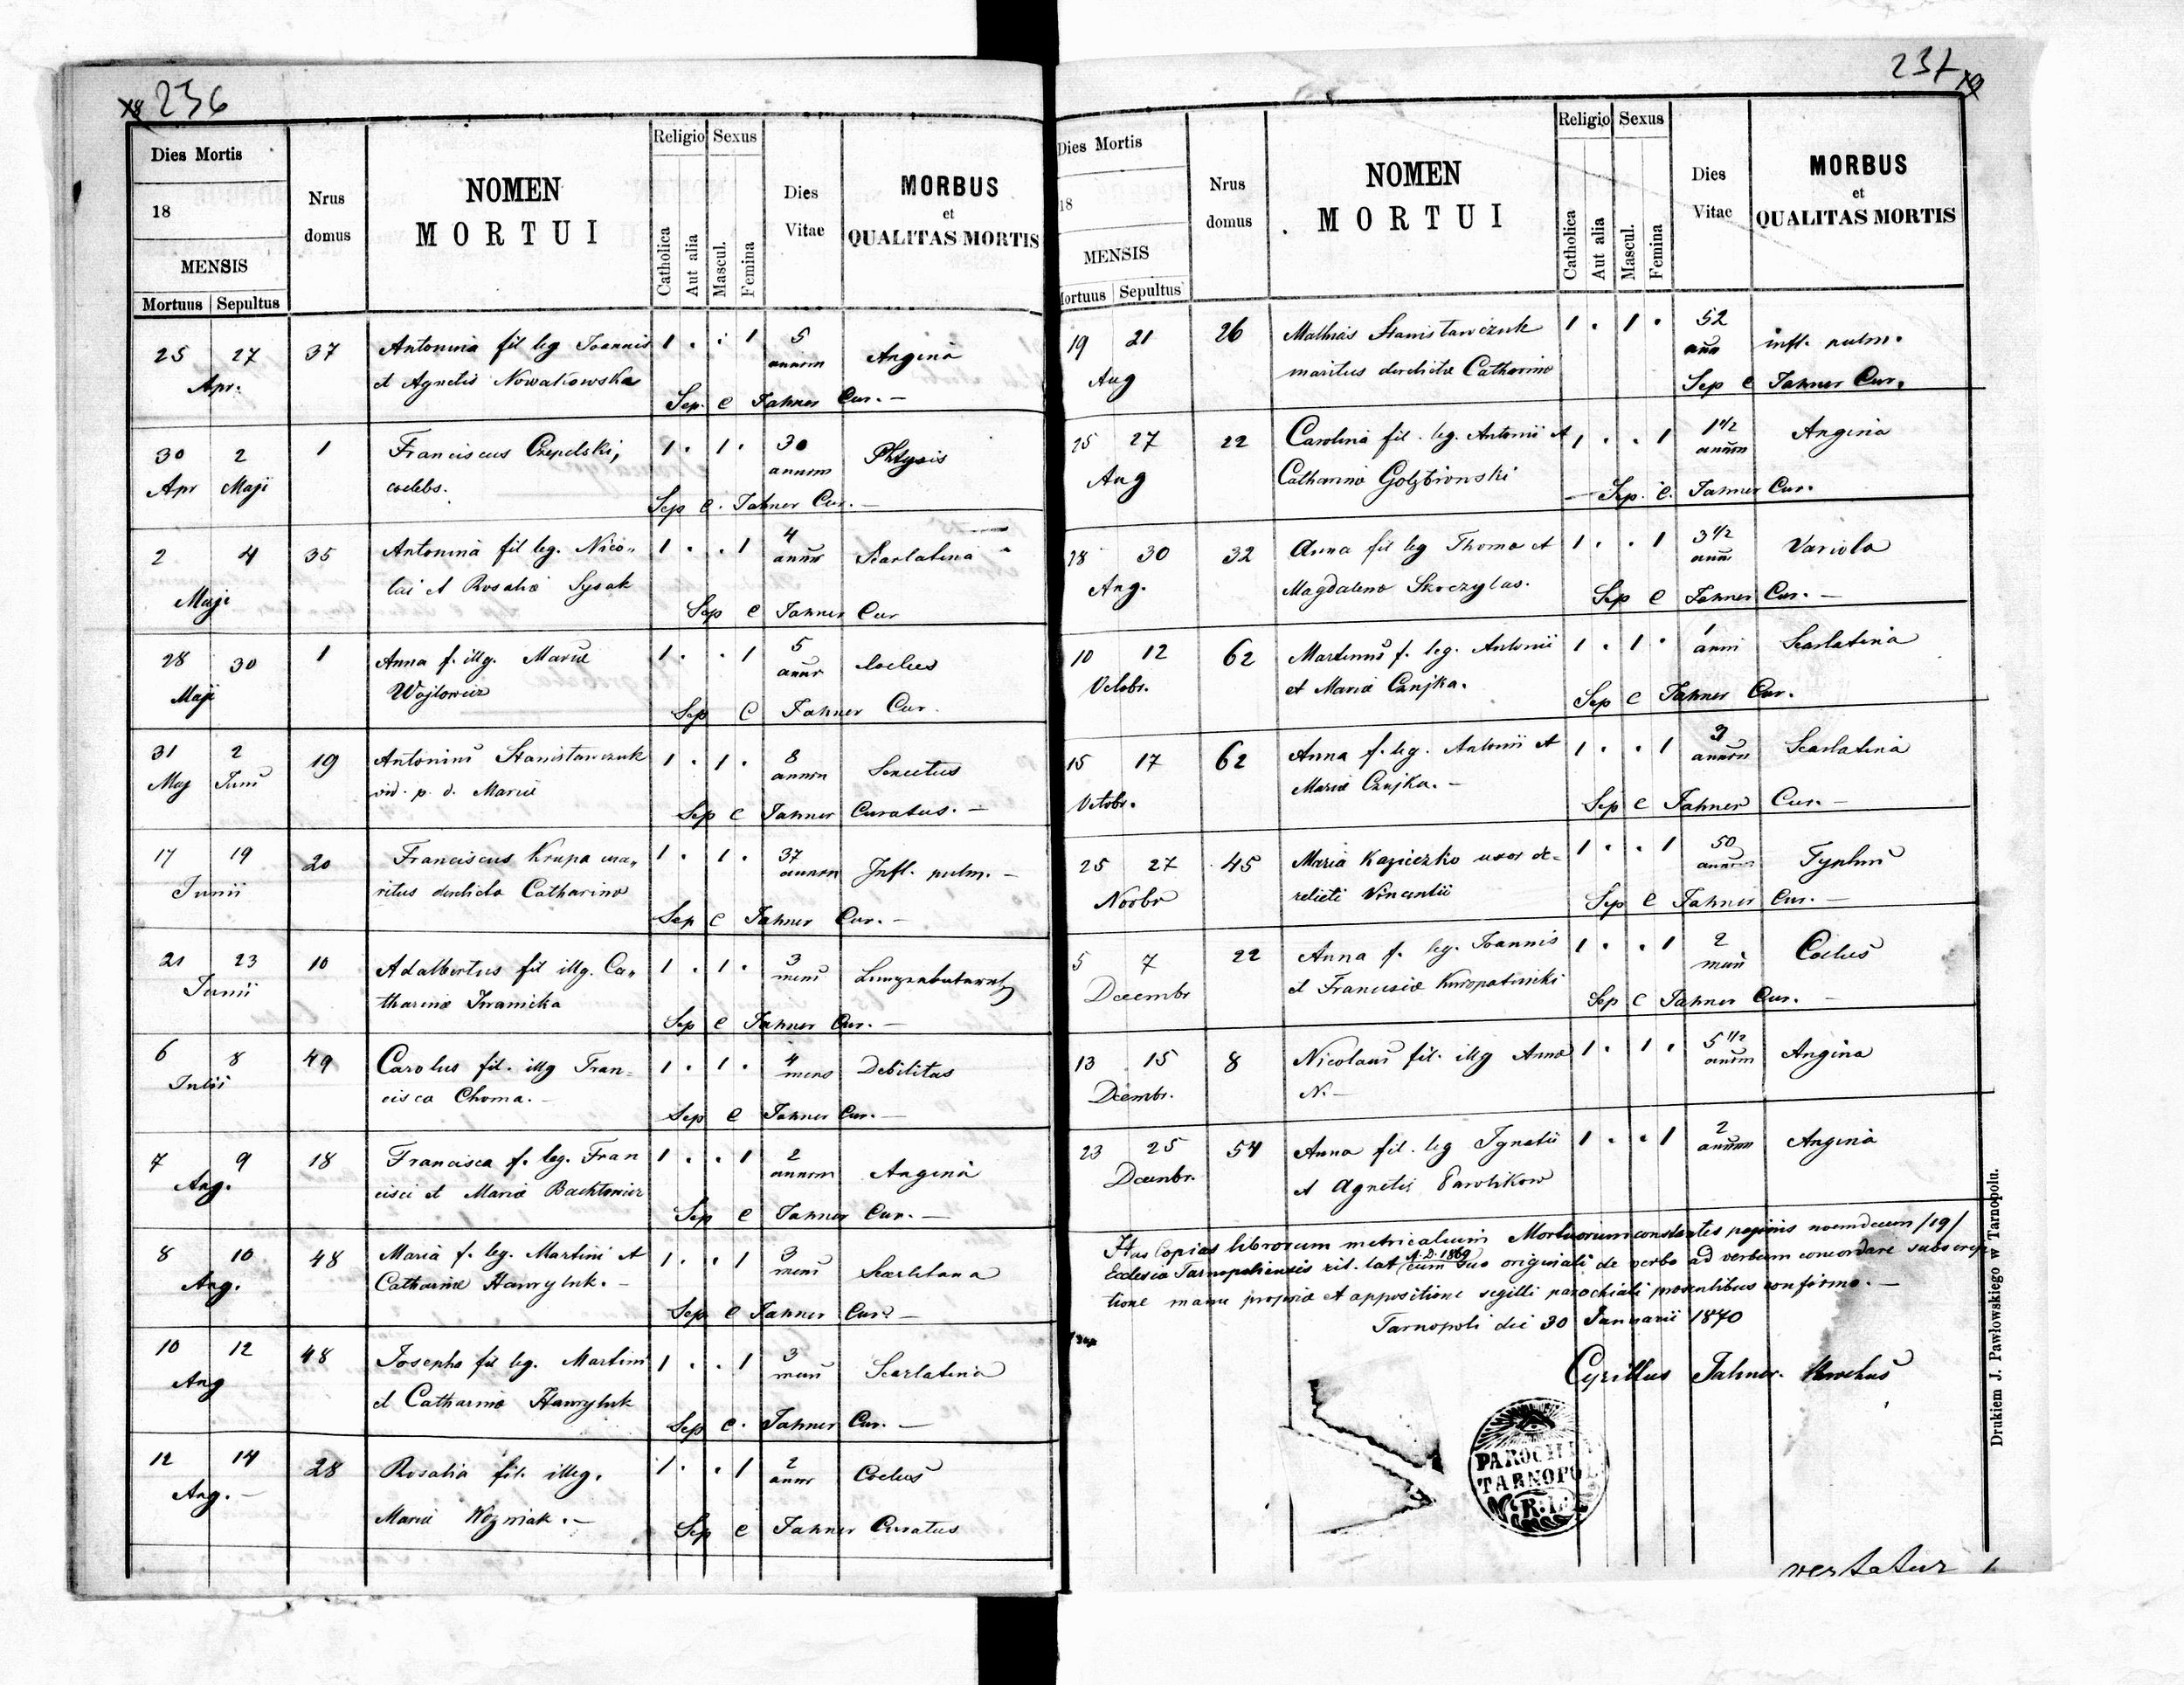 236
Dies Mortis
18
MENSIS
Mortuus Sepultus
Nrus domus
NOMEN
MORTUI
Religio
Catholica
Aut alia
Sexus
Mascul.
Femina
Dies Vitae
MORBUS
et
QUALITAS MORTIS
25 27 37 Antonina fil leg Joannis 1 . . 1 5 Angina
Apr. et Agnetis Nowakowska annorum
Sep. C Tahner Cur. —
30 2 1 Franciscus Czepelski, 1 . 1 . 30 Phtysis
Apr Maji coelebs. annorum
Sep C. Tahner Cur. —
2 4 35 Antonina fil leg. Nico„ 1 . . 1 4 Scarlatina
Maji lai et Rosaliæ Sysak
Sep C Tahner Cur
28 30 1 Anna f. illg. Mariæ 1 . . 1 5
Maji Wojtowicz
Sep C Tahner Cur.
31 2 19 Antonius Stanisławczuk 1 . 1 . 8 Senectus
Maj Juni vid. p. d. Mariæ
Sep C Tahner Curatus. —
17 19 20 Franciscus Krupa ma„ 1 . 1 . 37 Infl. pulm. —
Junii ritus derelicta Catharina
Sep C Tahner Cur. —
21 23 10 Adalbertus fil illg. Ca„ 1 . 1 . 3
Junii tharinæ Iwanicka mens
Sep C Tahner Cur. —
6 8 49 Carolus fil. illg Fran= 1 . 1 . 4 Debilitas
Julii cisca Choma. — mens
Sep C Tahner Cur. —
7 9 18 Francisca f. leg. Fran 1 . . 1 2 Angina
Aug. cisci et Mariæ annorum
Sep C Tahner Cur. —
8 10 48 Maria f. leg. Martini et 1 . . 1 3
Aug. Catharinæ Hawryluk. — mens
Sep C Tahner Cur.
10 12 48 Josepha fil leg. Martini 1 . . 1 3 Scarlatina
Aug et Catharinæ Hawryluk
Sep C. Tahner Cur. —
12 14 28 Rosalia fil. illeg. 1 . . 1 2
Aug. — Mariæ Wozniak. —
Sep C Tahner Curatus
237
Dies Mortis
18
MENSIS
Mortuus Sepultus
Nrus domus
NOMEN
MORTUI
Religio
Catholica
Aut alia
Sexus
Mascul.
Femina
Dies Vitae
MORBUS
et
QUALITAS MORTIS
19 21 26 Mathias Stanisławczuk 1 . 1 . 52 infl. pulm.
Aug maritus derelictæ Catharinæ
Sep C Tahner Cur.
25 27 22 Carolina fil. leg. Antonii et 1 . . 1 1 1/2 Angina
Aug Catharinæ
— Sep. C. Tahner Cur.
28 30 32 Anna fil leg Thomæ et 1 . . 1 3 1/2 Variola
Aug. Magdalenæ Skoczylas.
Sep C Tahner Cur. —
10 12 62 Martinus f. leg. Antonii 1 . 1 . 1 Scarlatina
Octobr. et Mariæ Czujka. anni
Sep C Tahner Cur.
15 17 62 Anna f. leg. Antonii et 1 . . 1 3 Scarlatina
Octobr. Mariæ Czujka. — annorum
Sep C Tahner Cur. —
25 27 45 Maria uxor de= 1 . . 1 50 Typhus
Novbr relicti Vincentii annorum
Sep C Tahner Cur. —
5 7 22 Anna f. leg. Joannis 1 . . 1 2
Decembr et Franciscæ Kuropatnicki
Sep C Tahner Cur. —
13 15 8 Nicolaus fil. illg Annæ 1 . 1 . 5 1/2 Angina
Decembr. N. —
23 25 54 Anna fil. leg Ignatii 1 . . 1 2 Angina
Decenbr. et Agnetis
Has Copias librorum metricalium Mortuorum constantes paginis novemdecim /19/
A.D. 1869
Ecclesiæ Tarnopoliensis rit. lat cum suo originali de verbo ad verbum concordare subscrip
tione manu propria et appositione sigilli parochiali præsentibus confirmo. —
Tarnopoli die 30 Januarii 1870
Cyrillus Tahner. Parochus
PAROCHI
TARNOPOL
R. L.
vertatur
Drukiem J. Pawłowskiego w Tarnopolu.